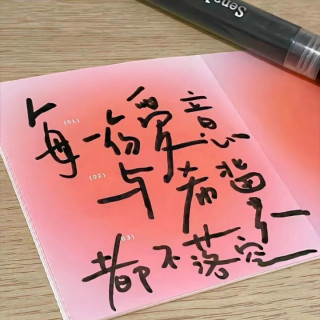 (01)
每一份爱意
(02)
与希冀
(03)
都不落空